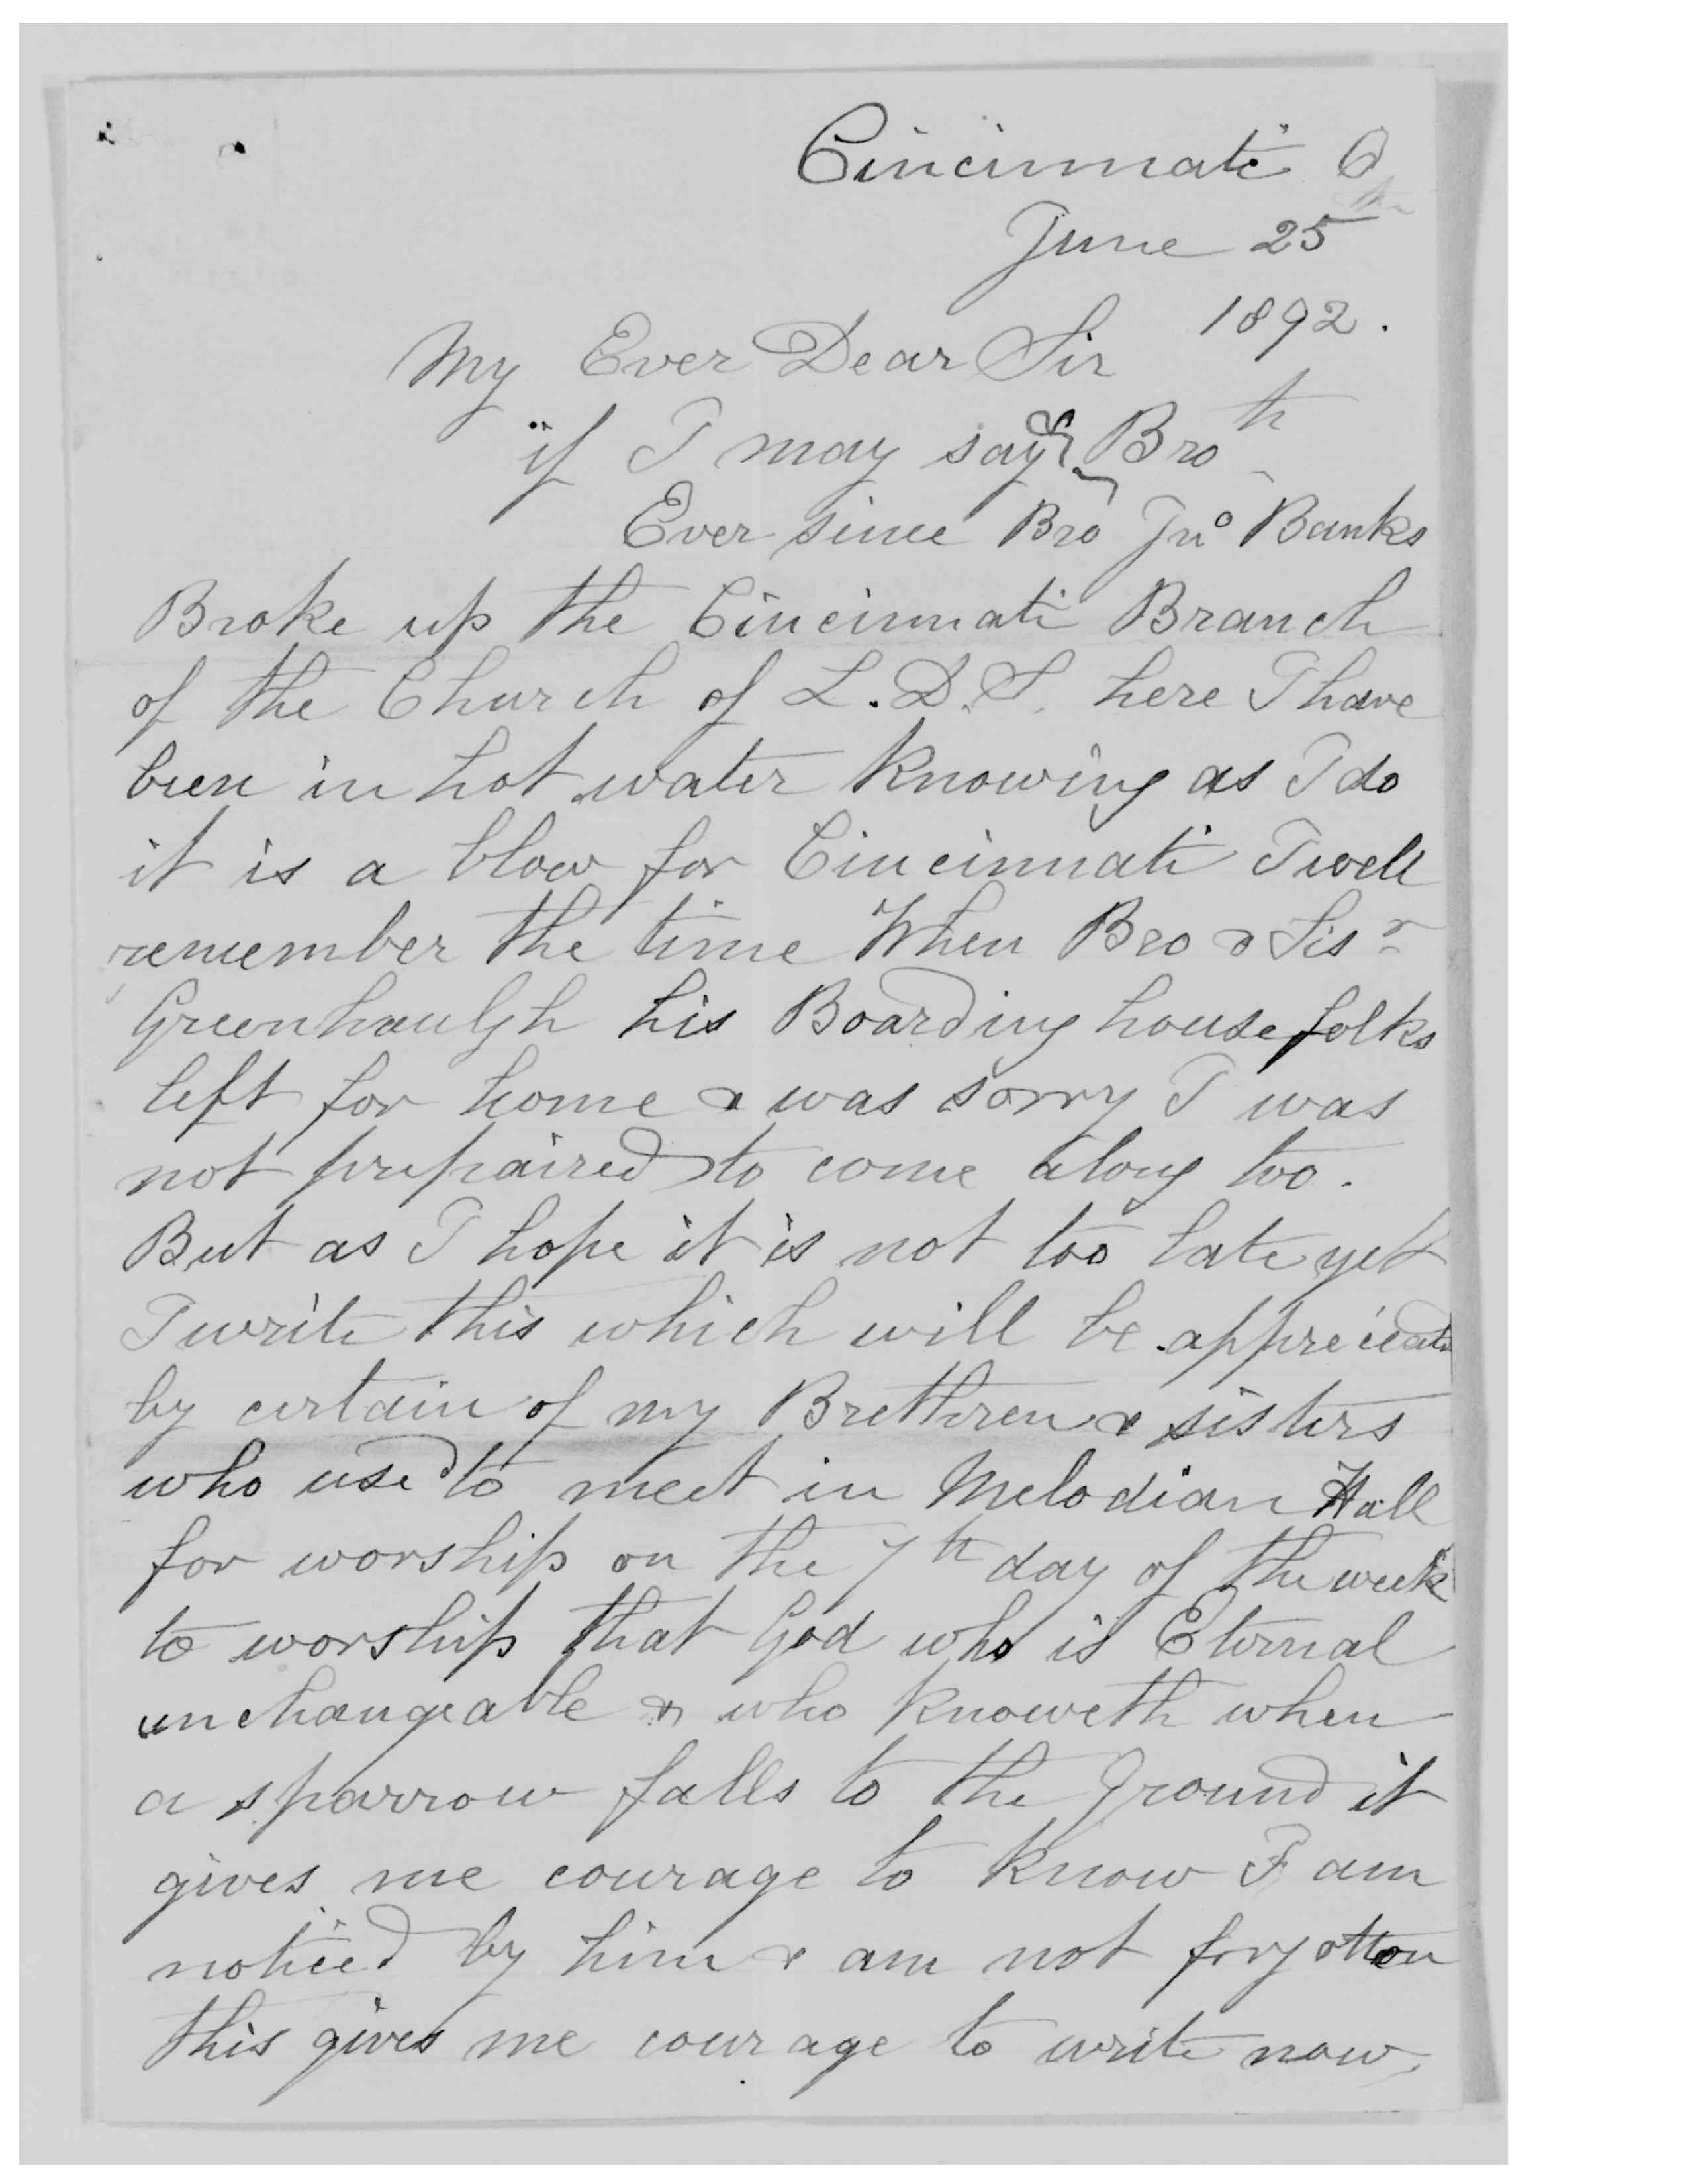 Cincinnati O
June 25th
1892.
My Ever Dear Sir
if I may say Broth
Ever since Bro Jno Banks
Broke up the Cincinnati Branch
of the Church of L.D.S. here I have
been in hot water knowing as I do
it is a blow for Cincinnati I well
remember the time When Bro & Sisr
Greenhaulgh his Boarding house folks
left for home & was sorry I was
not prepaired to come along too.
But as I hope it is not too late yet
I write this which will be appreciate
by certain of my Brethren & sisters
who used to meet in Melodian Hall
for worship on the 7th day of the week
to worship that God who is Eternal
unchangeable & who knoweth when
a sparrow falls to the ground it
gives me courage to know I am
noticed by him & am not forgotton
this gives me courage to write now.